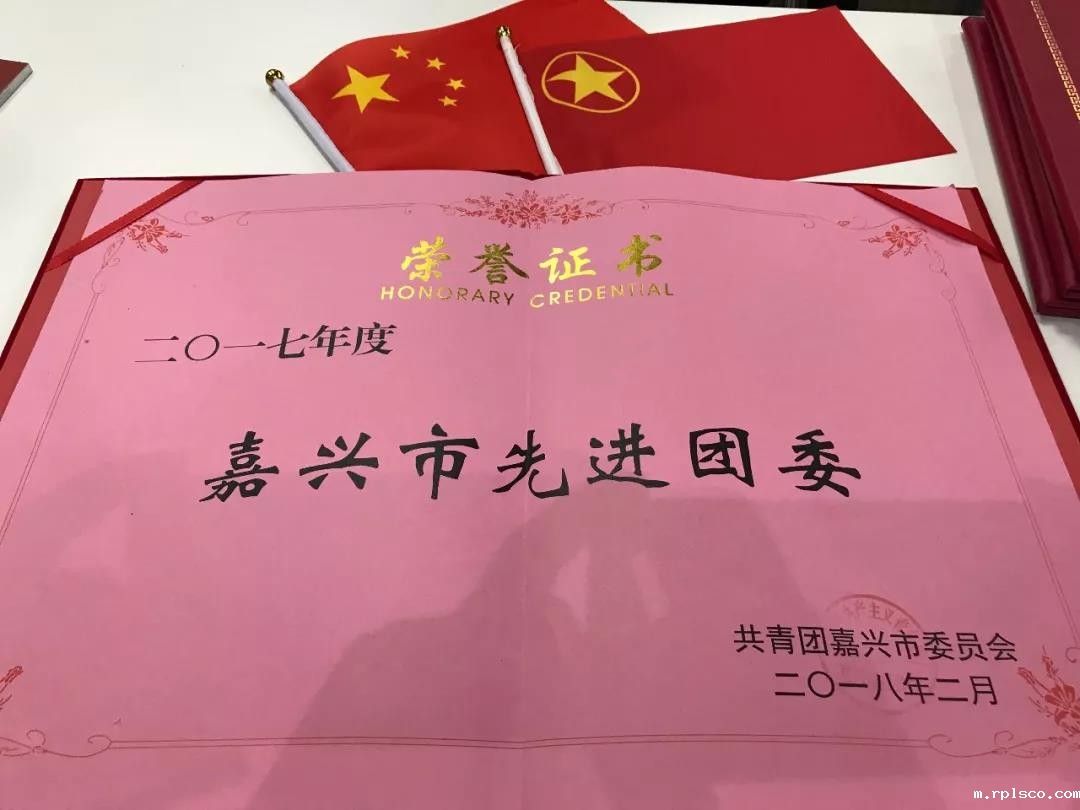 荣誉证书
HONORARY CREDENTIAL
二〇一七年度
嘉兴市先进团委
共青团嘉兴市委员会
二〇一八年二月
m.rplsco.com